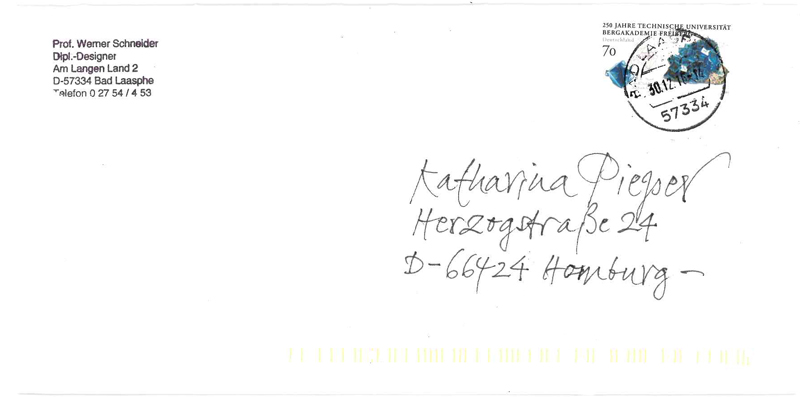 Prof. Werner Schneider
Dipl.-Designer
Am Langen Land 2
D-57334 Bad Laasphe
Telefon 0 27 54 / 4 53
250 JAHRE TECHNISCHE UNIVERSITÄT
BERGAKADEMIE FREIBERG
Deutschland
70
BAD LAASPHE
30.12.
57334
Katharina Piepser
Herzogstraße 24
D-66424 Homburg –